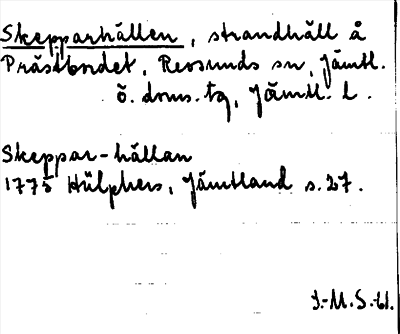 Skepparhällen, strandhäll å
Prästbordet, Revsunds sn, Jämtl.
ö. doms. tg, Jämtl. l.
Skeppar-hällan
1775 Hülphers, Jämtland s. 27.
J.-M.S.-61.